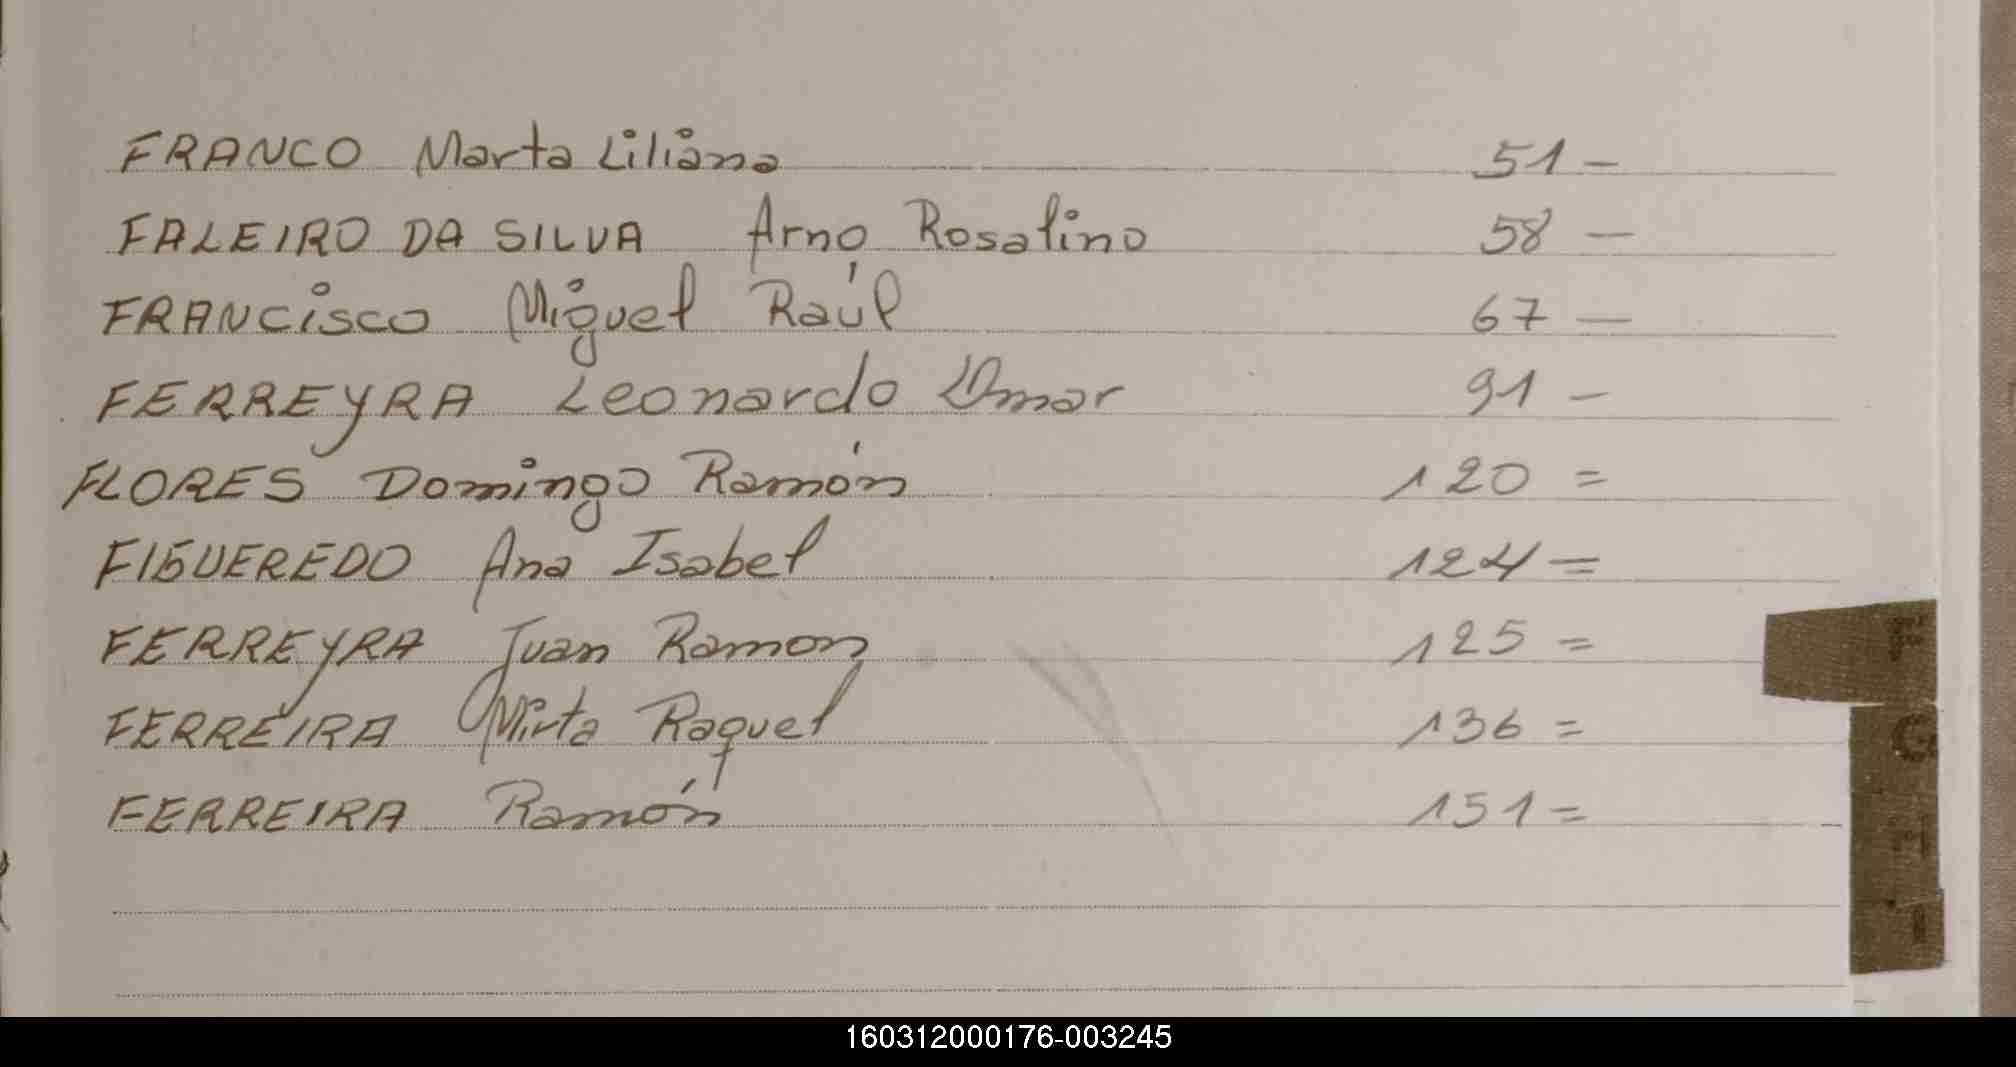 FRANCO Marta Liliana 51 -
FALEIRO DA SILVA Arno Rosalino 58 -
FRANCISCO Miguel Raúl 67 -
FERREYRA Leonardo Omar 91 -
FLORES Domingo Ramón 120 =
FIGUEREDO Ana Isabel 124 =
FERREYRA Juan Ramon 125 =
FERREIRA Mirta Raquel 136 =
FERREIRA Ramón 151 =
F
G
H
I
160312000176-003245